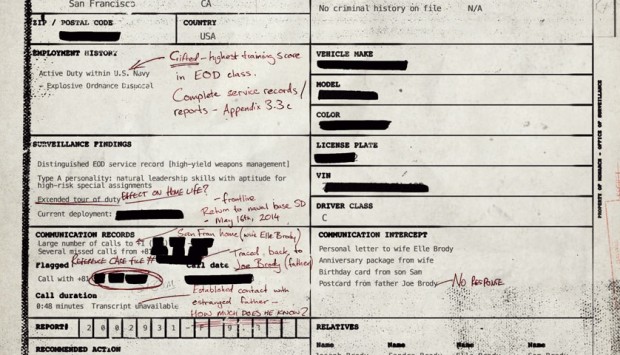 San Francisco
CA
No criminal history on file N/A
ZIP / POSTAL CODE
COUNTRY
USA
EMPLOYMENT HISTORY
Active Duty within U.S. Navy
- Explosive Ordnance Disposal
Gifted - highest training score
in EOD class.
Complete service records/
reports - Appendix 3.3c
VEHICLE MAKE
MODEL
COLOR
LICENSE PLATE
VIN
DRIVER CLASS
C
SURVEILLANCE FINDINGS
Distinguished EOD service record [high-yield weapons management]
Type A personality: natural leadership skills with aptitude for
high-risk special assignments
Extended tour of duty
EFFECT ON HOME LIFE?
Current deployment:
- frontline
Return to naval base SD
- May 16th, 2014
COMMUNICATION RECORDS
Large number of calls to +1 (
San Fran home (with Elle Brody)
Several missed calls from +81
REFERENCE CASE FILE #
Traced back to
Joe Brody (father)
Flagged
Call date
Call with +81
Call duration
0:48 minutes Transcript unavailable
Established contact with
estranged father -
HOW MUCH DOES HE KNOW?
COMMUNICATION INTERCEPT
Personal letter to wife Elle Brody
Anniversary package from wife
Birthday card from son Sam
Postcard from father Joe Brody
NO RESPONSE
REPORT#
2 0 0 2 9 3 1
RELATIVES
Name Name Name Name
RECOMMENDED ACTION
PROPERTY OF MONARCH - OFFICE OF SURVEILLANCE